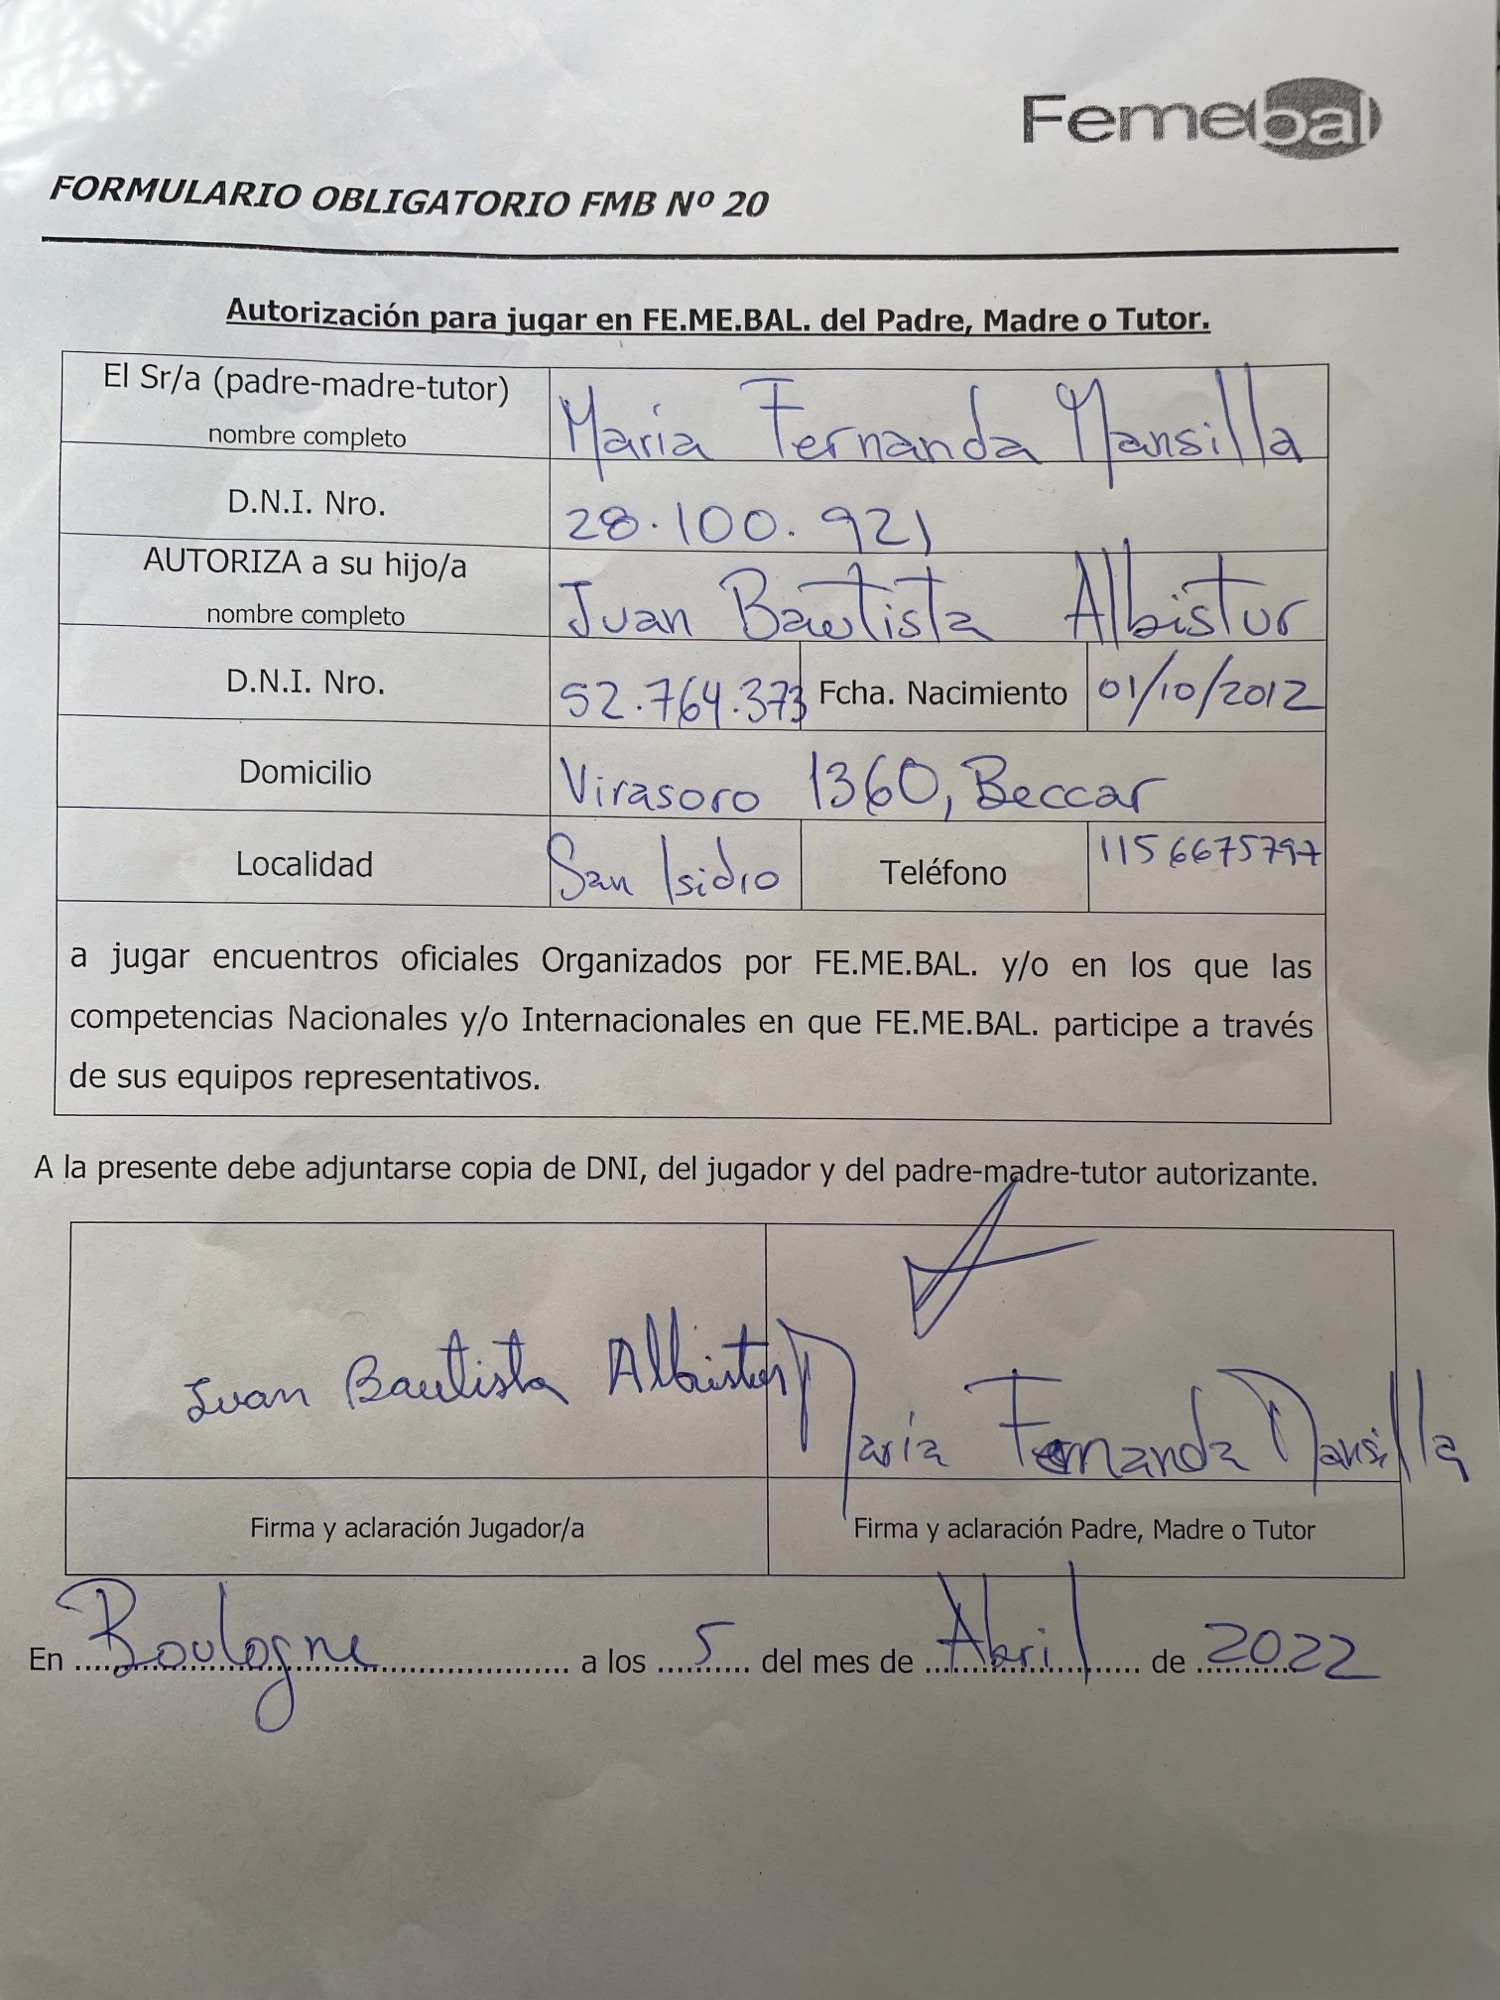 Femebal
FORMULARIO OBLIGATORIO FMB Nº 20
Autorización para jugar en FE.ME.BAL. del Padre, Madre o Tutor.
El Sr/a (padre-madre-tutor)
nombre completo
María Fernanda Mansilla
D.N.I. Nro.
28.100.921
AUTORIZA a su hijo/a
nombre completo
Juan Bautista Albistur
D.N.I. Nro.
52.764.373
Fcha. Nacimiento
01/10/2012
Domicilio
Virasoro 1360, Beccar
Localidad
San Isidro
Teléfono
1156675797
a jugar encuentros oficiales Organizados por FE.ME.BAL. y/o en los que las
competencias Nacionales y/o Internacionales en que FE.ME.BAL. participe a través
de sus equipos representativos.
A la presente debe adjuntarse copia de DNI, del jugador y del padre-madre-tutor autorizante.
Juan Bautista Albistur
María Fernanda Mansilla
Firma y aclaración Jugador/a
Firma y aclaración Padre, Madre o Tutor
En Boulogne a los 5 del mes de Abril de 2022